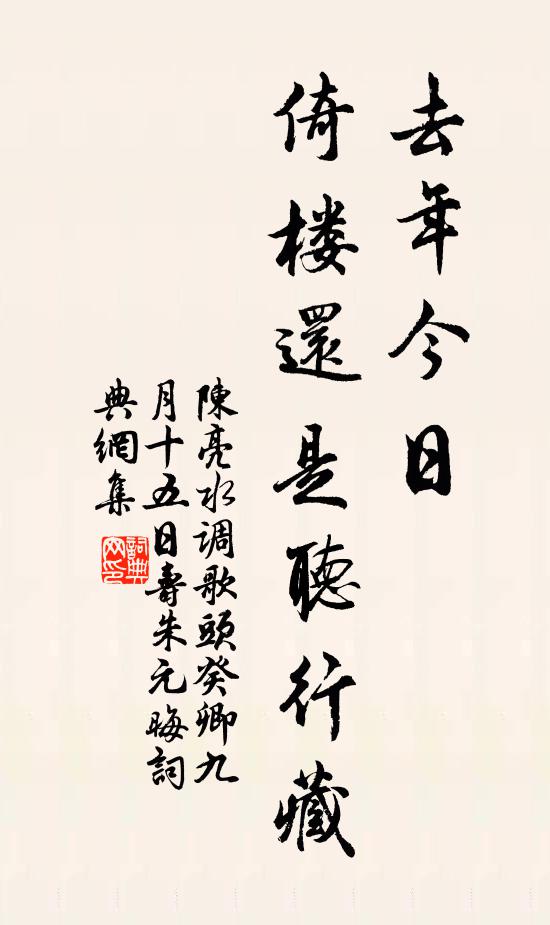 去年今日
倚楼還是聽行藏
陳亮水调歌頭癸卿九
月十五日壽朱元晦詞
典網集
詞典网印